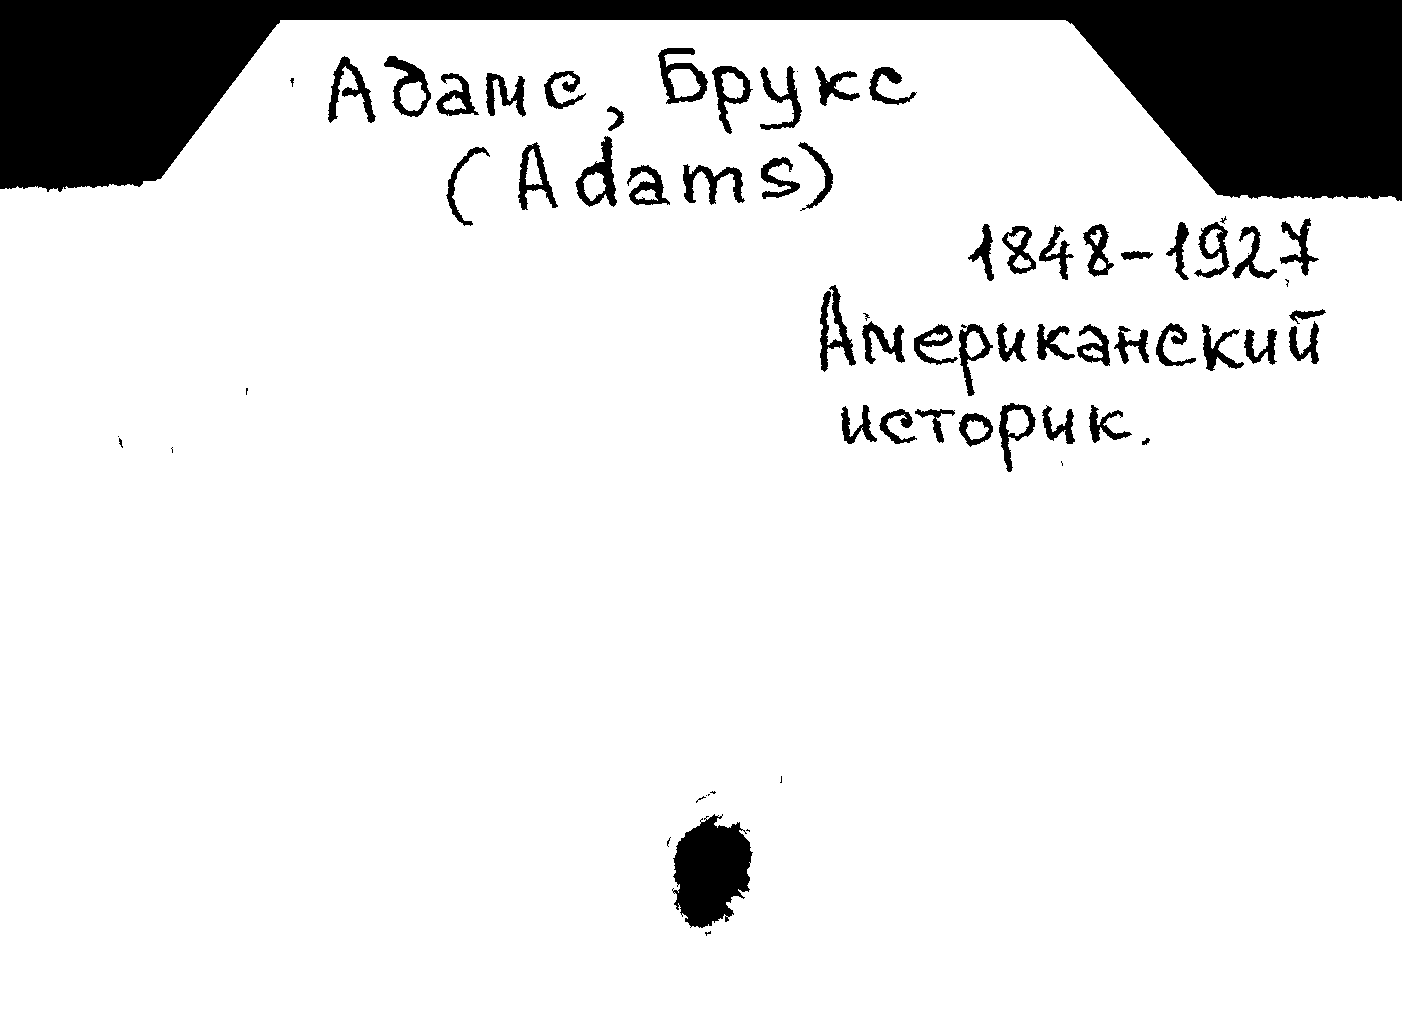 Адамс, Брукс
(Adams)
1848-1927
Американский
историк.